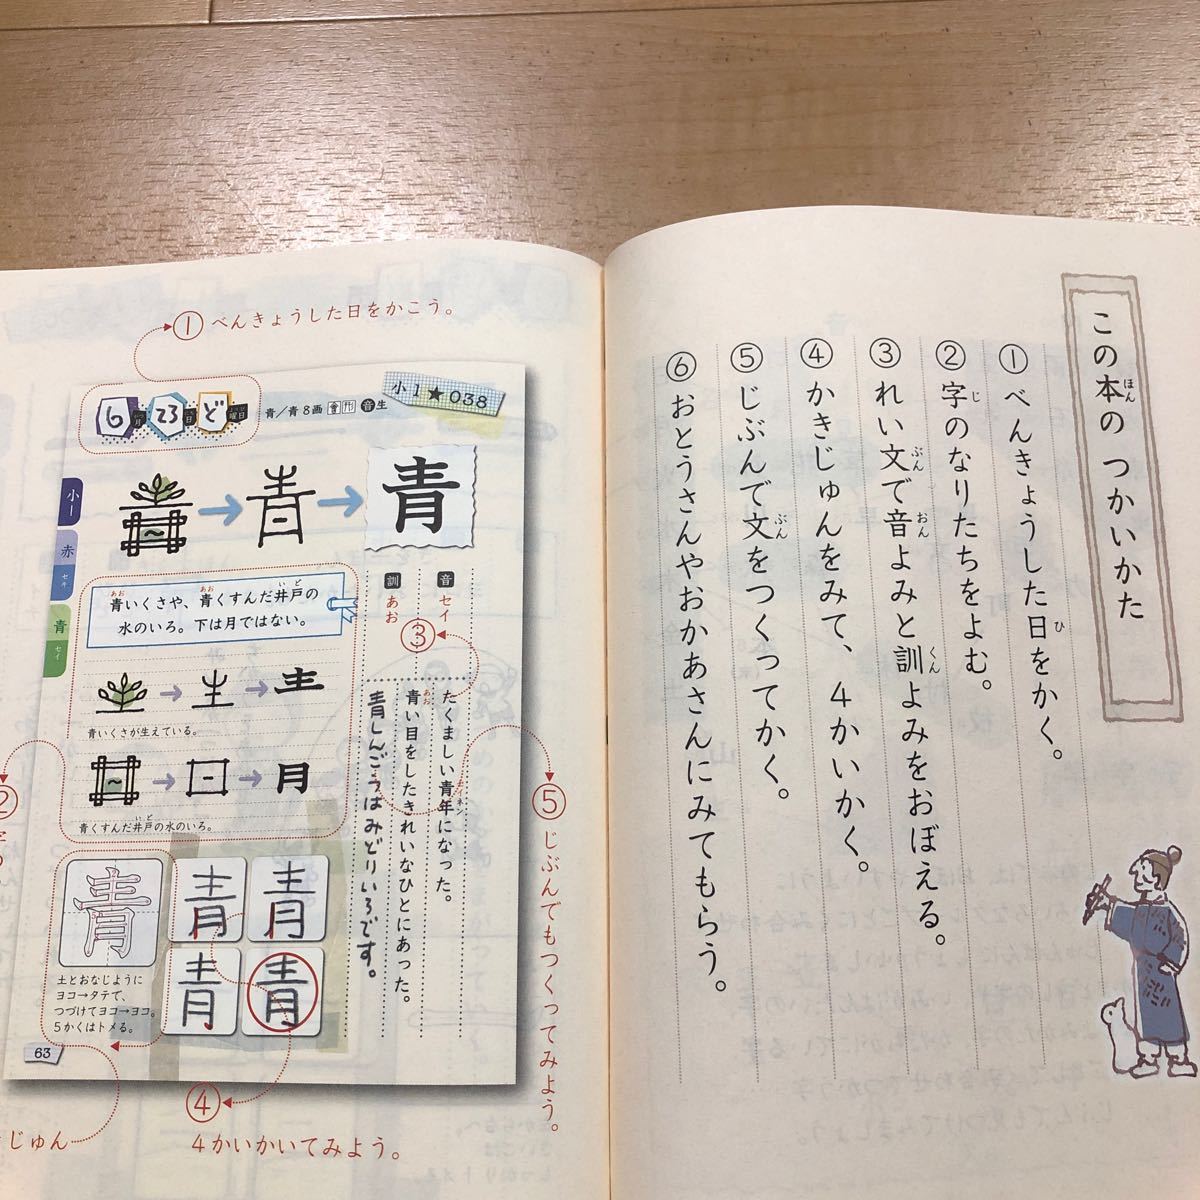 この本のつかいかた
ほん
①べんきょうした日をかく。
ひ
②字のなりたちをよむ。
じ
③れい文で音よみと訓よみをおぼえる。
ぶん おん くん
④かきじゅんをみて、4かいかく。
⑤じぶんで文をつくってかく。
ぶん
⑥おとうさんやおかあさんにみてもらう。
①べんきょうした日をかこう。
小1★038
6月23日ど曜日
青/青8画 會 形 音生
青
小一
赤 セキ
青 セイ
音 セイ
訓 あお
③
青いくさや、青くすんだ井戸の
あお あお いど
水のいろ。下は月ではない。
青いくさが生えている。
青くすんだ井戸の水のいろ。
いど
たくましい青年になった。
セイネン
青い目をしたきれいなひとにあった。
あお
青しんごうはみどりいろです。
⑤じぶんでもつくってみよう。
②
青 青 青
青 青
土とおなじように
ヨコ→タテで、
つづけてヨコ→ヨコ。
5かくはトメる。
63
④
4かいかいてみよう。
じゅん